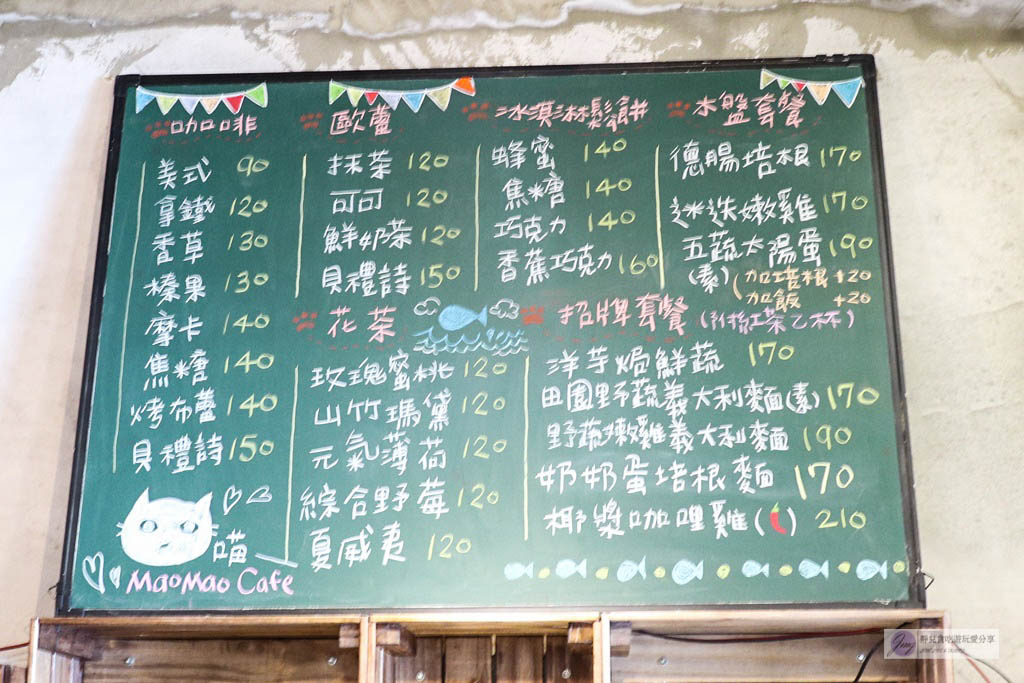 咖啡
美式 90
拿鐵 120
香草 130
榛果 130
摩卡 140
焦糖 140
烤布蕾 140
貝禮詩 150
喵
MaoMao Cafe
歐蕾
抹茶 120
可可 120
鮮奶茶 120
貝禮詩 150
花茶
玫瑰蜜桃 120
山竹瑪黛 120
元氣薄荷 120
綜合野莓 120
夏威夷 120
冰淇淋鬆餅
蜂蜜 140
焦糖 140
巧克力 140
香蕉巧克力 160
木盤套餐
德腸培根 170
迷迭嫩雞 170
五蔬太陽蛋 190
(素) (加培根 +20
加飯 +20
招牌套餐 (附擋紅茶乙杯)
洋芋焗鮮蔬 170
田園野蔬義大利麵(素) 170
野蔬嫩雞義大利麵 190
奶奶蛋培根麵 170
椰漿咖哩雞( ) 210
靜兒貪吃遊玩愛分享